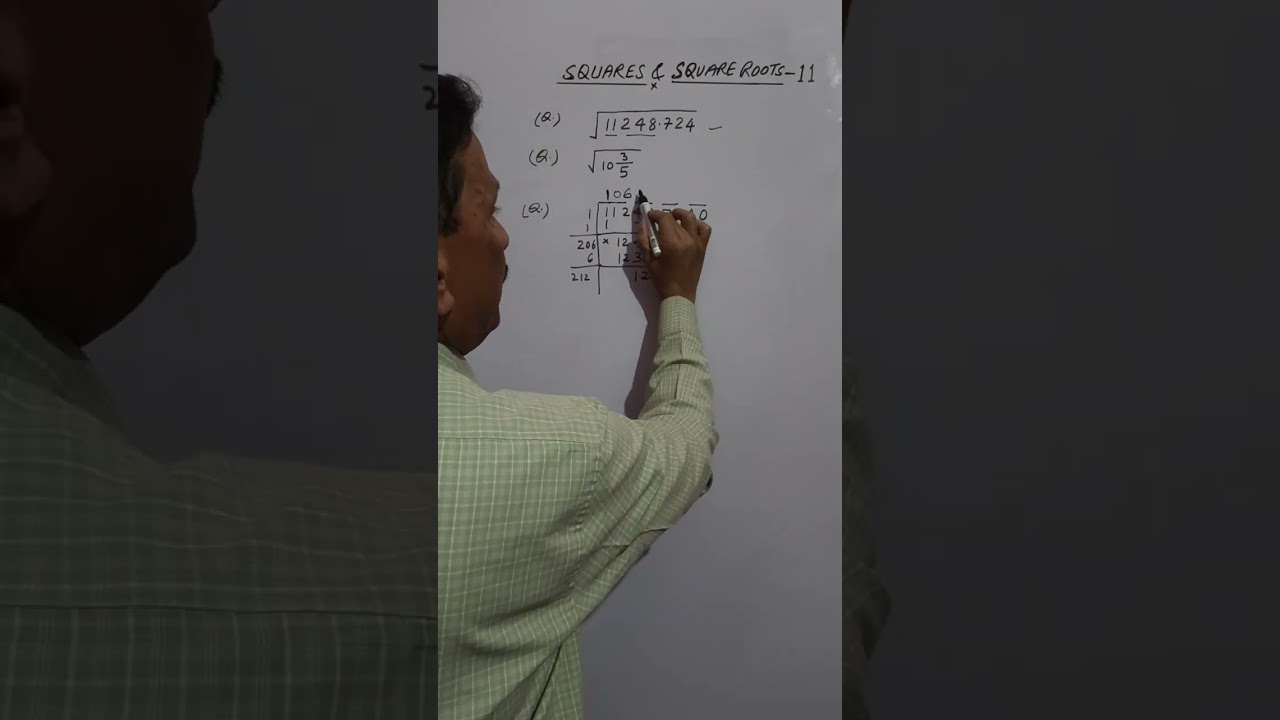 SQUARES & SQUARE ROOTS-11
(Q.) √11248.724
(Q.) √10 3/5
106
(Q.) 1 112
1 1
206 × 12
6 123
212 12